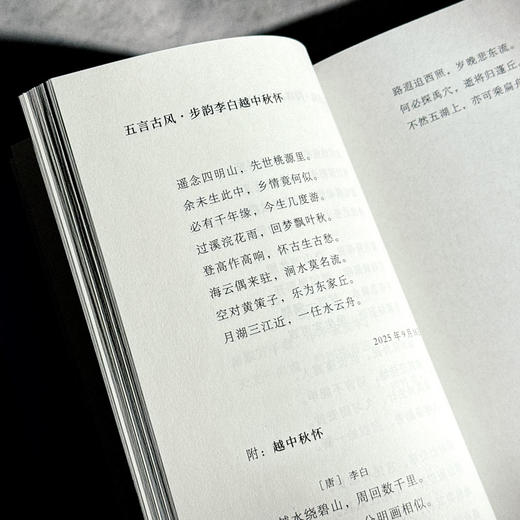 五言古风·步韵李白越中秋怀
遥念四明山，先世桃源里。
余未生此中，乡情竟何似。
必有千年缘，今生几度游。
过溪浣花雨，回梦飘叶秋。
登高作高响，怀古生古愁。
海云偶来驻，涧水莫名流。
空对黄策子，乐为东家丘。
月湖三江近，一任水云舟。
2025年9月
附：越中秋怀
［唐］李白
水绕碧山，周回数千里。
分明画相似。
路遐迫西照，岁晚悲东流。
何必探禹穴，逝将归蓬丘。
不然五湖上，亦可乘扁